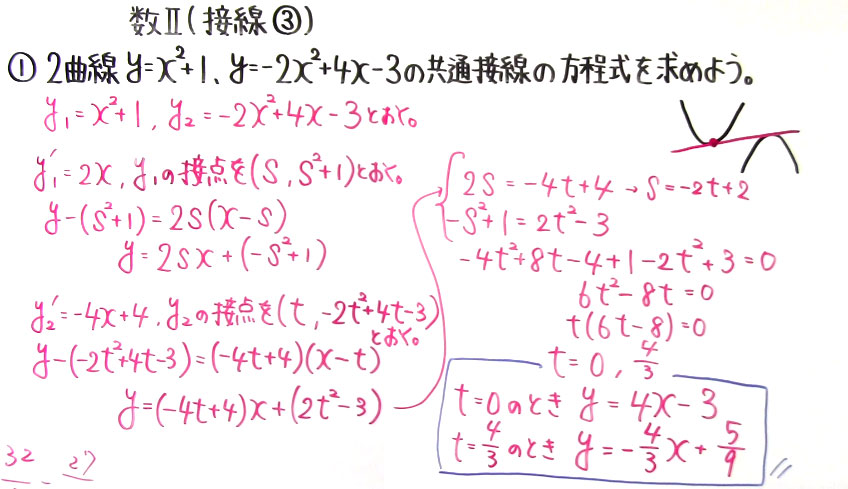 数Ⅱ(接線③)
① 2曲線 y=x²+1、y=-2x²+4x-3の共通接線の方程式を求めよう。
y₁=x²+1, y₂=-2x²+4x-3とおく。
y₁'=2x, y₁の接点を(s, s²+1)とおく。
y-(s²+1)=2s(x-s)
y=2sx+(-s²+1)
y₂'=-4x+4, y₂の接点を(t, -2t²+4t-3)とおく。
y-(-2t²+4t-3)=(-4t+4)(x-t)
y=(-4t+4)x+(2t²-3)
2s=-4t+4→s=-2t+2
-s²+1=2t²-3
-4t²+8t-4+1-2t²+3=0
6t²-8t=0
t(6t-8)=0
t=0, 4/3
t=0のとき y=4x-3
t=4/3のとき y=-4/3x+5/9
32 27